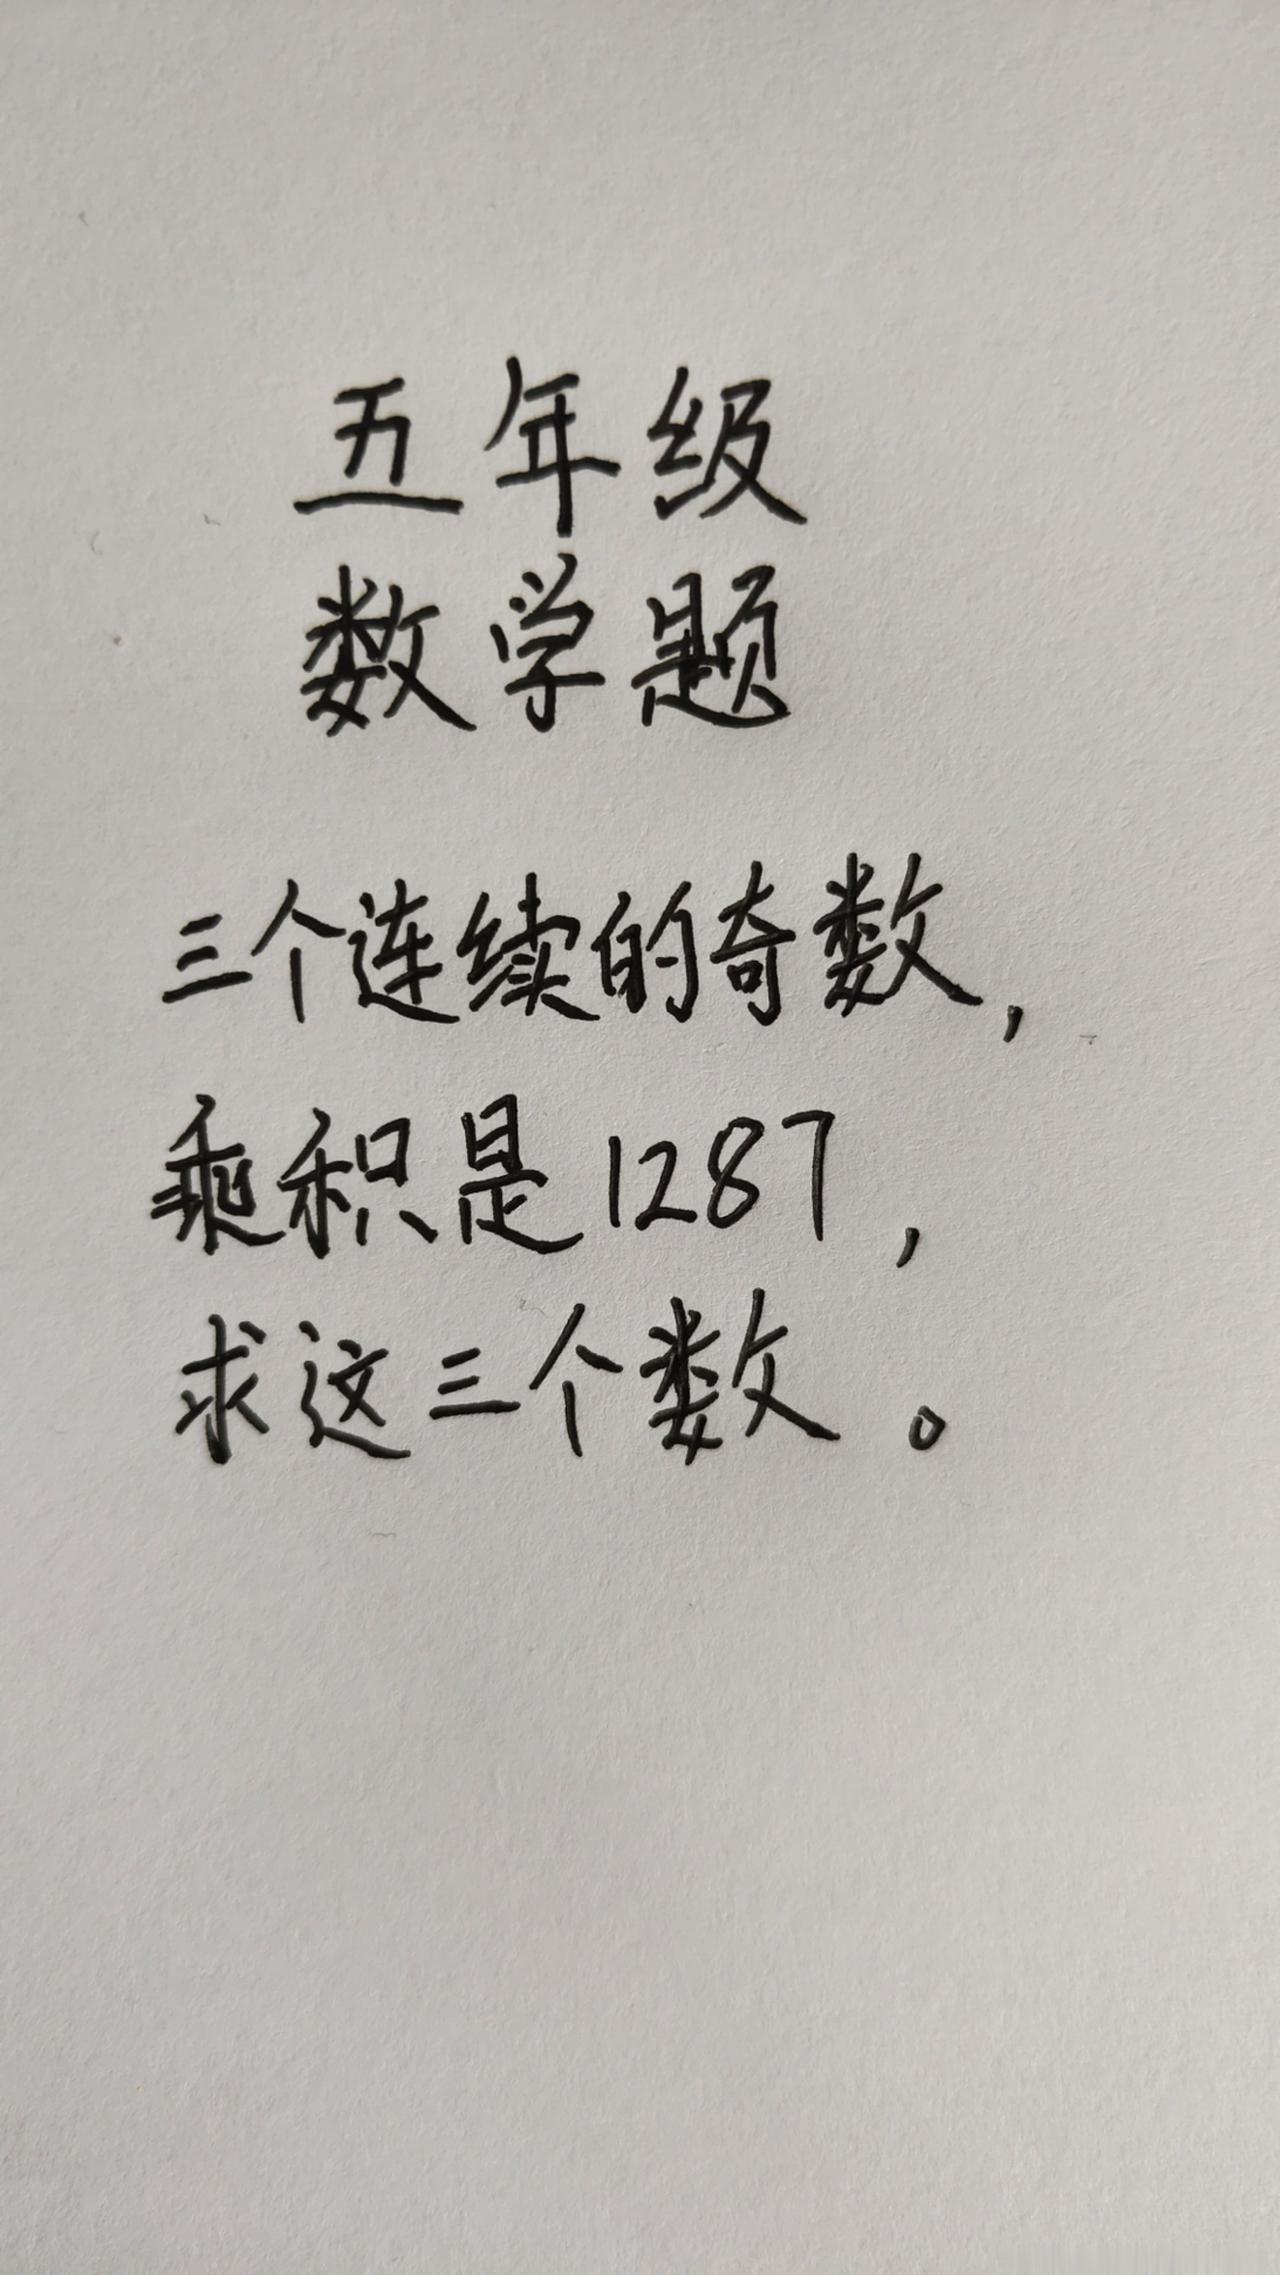 五年级
数学题
三个连续的奇数，
乘积是1287，
求这三个数。